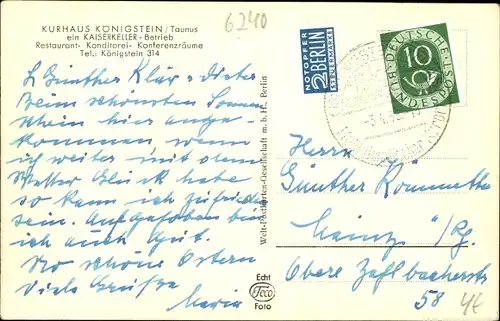 KURHAUS KÖNIGSTEIN/Taunus
ein KAISERKELLER-Betrieb
Restaurant- Konditorei- Konferenzräume
Tel.: Königstein 314
6240
L. Günther Klär + Dieter
Beim schönsten Sonnen
schein hier ange-
kommen, wenn
ich weiter mit dem
Wetter Glück habe
so kann ich zufrieden
sein. Aufgehoben bin
ich auch gut.
No schöne Ostern
Viele Grüße
Maria
Welt-Postkarten-Gesellschaft m.b.H., Berlin
Echt
Teco
Foto
NOTOPFER
2 BERLIN
STEUERMARKE
DEUTSCHE BUNDESPOST
10
Herrn
Günther
Mainz a/Rh.
Obere Zahlbacherstr
58